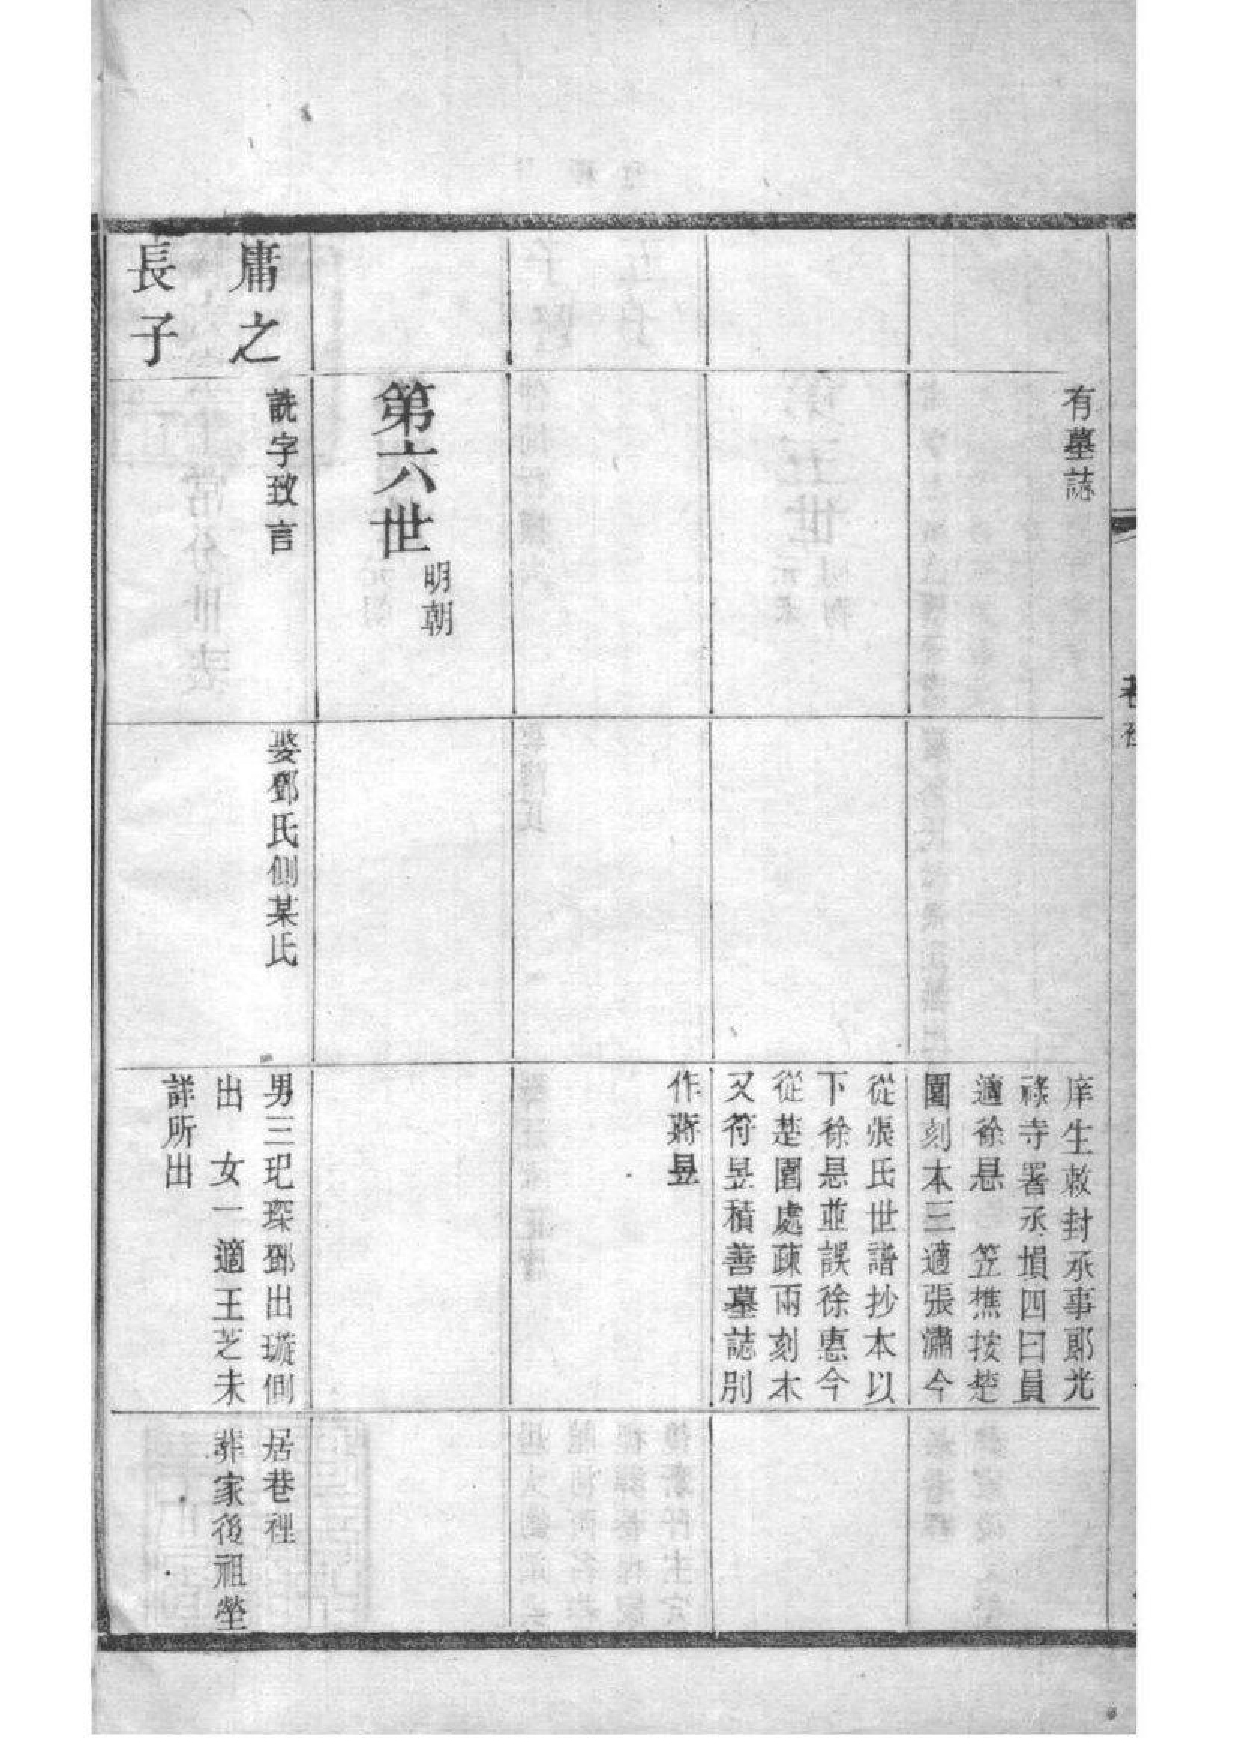 有墓誌
庠生敕封承事郎光
祿寺署丞塤四曰員
適徐恳　笠樵按楚
園刻本三適張瀟今
從張氏世譜抄本以
下徐恳並誤徐惪今
從楚園處疎兩刻本
又符昱積善墓誌別
作蔣昱
第六世
明朝
庸之
長子
詵字致言
娶鄧氏側某氏
男三玘琛鄧出璇側
出　女一適王芝未
詳所出
居巷裡
葬家後祖塋